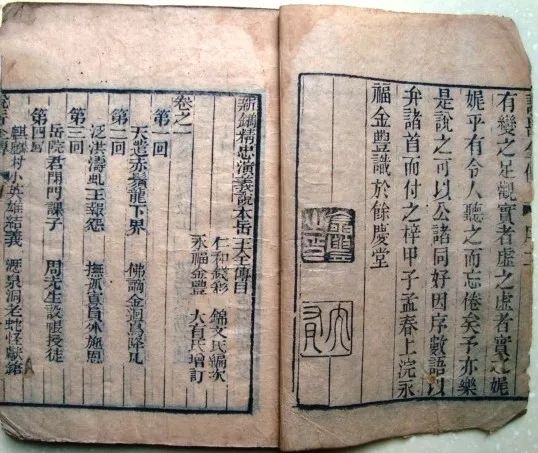 有變之足觀實者虛之虛者實之娓
娓乎有令人聽之而忘倦矣予亦樂
是說之可以公諸同好因序數語以
弁諸首而付之梓甲子孟春上浣永
福金豐識於餘慶堂
金豐
大有
新鐫精忠演義說本岳王全傳目
仁和錢彩 錦文氏編次
永福金豐 大有氏增訂
卷之一
第一回
天遣赤鬚龍下界 佛謫金翅鳥降凡
第二回
泛洪濤虬王報怨 撫孤寡員外施恩
第三回
岳院君閉門課子 周先生設帳授徒
第四回
麒麟村小英雄結義 瀝泉洞老蛇怪獻鎗